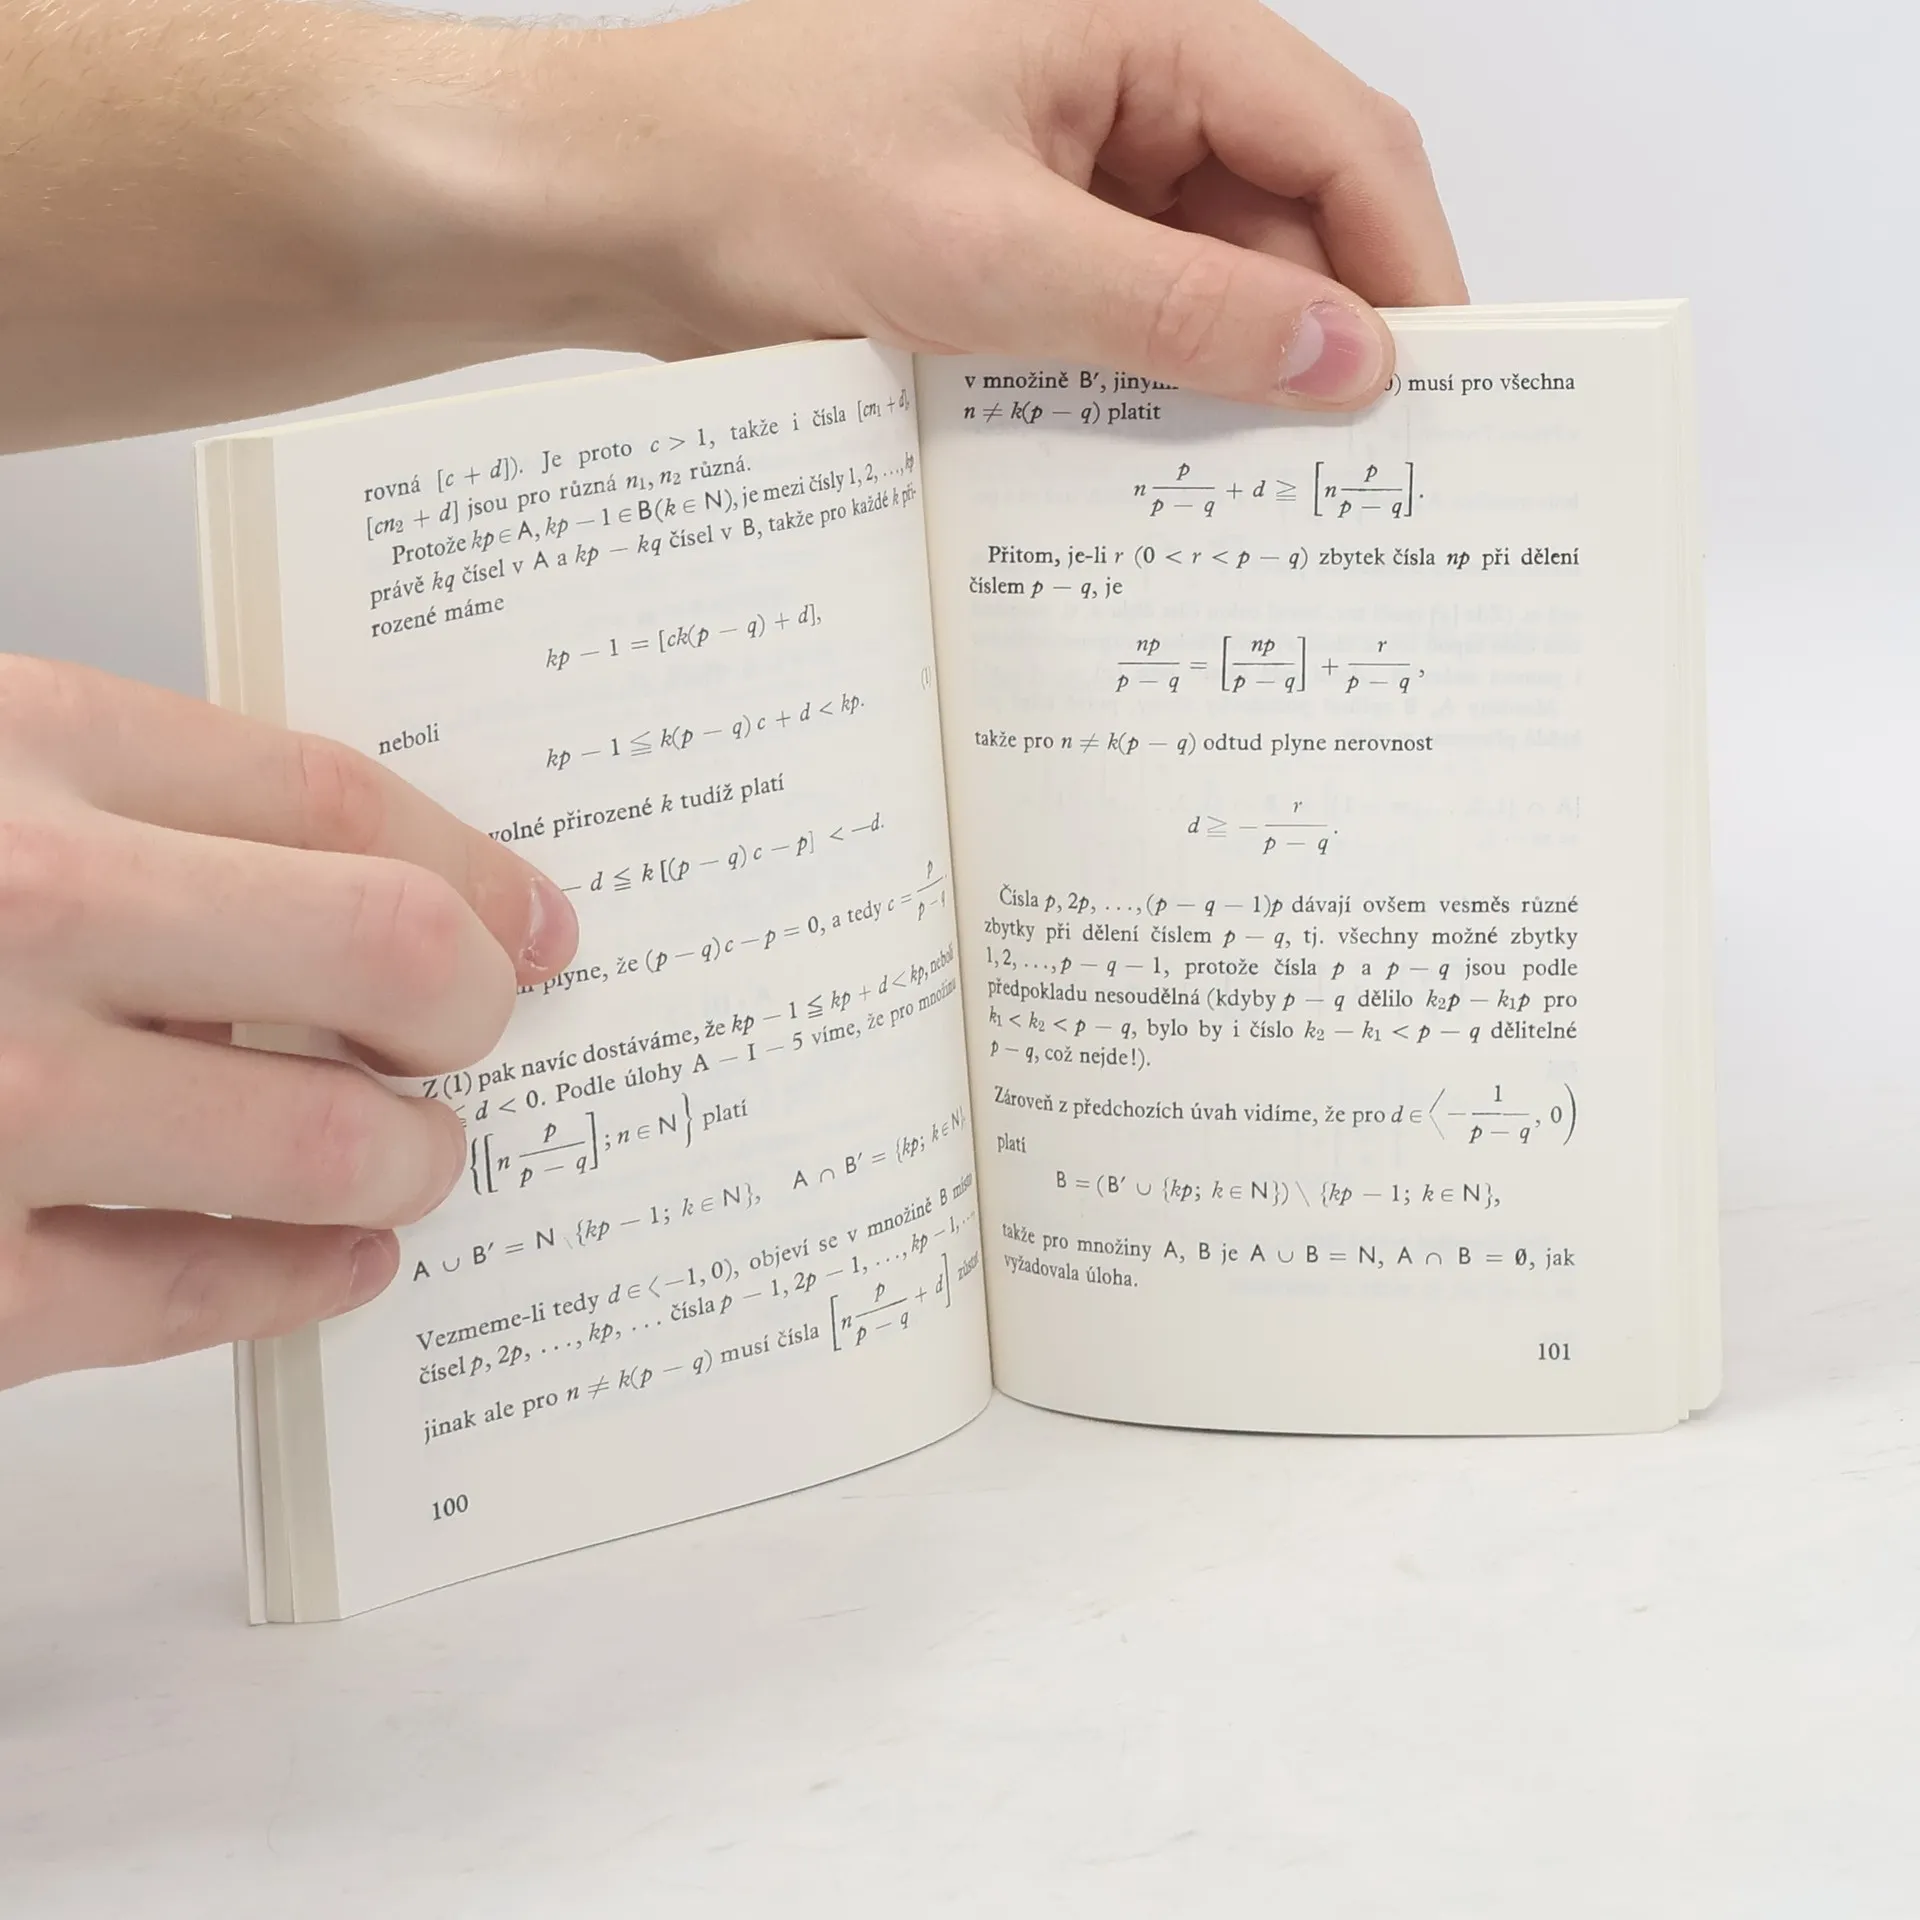 rovná [c + d]). Je proto c > 1, takže i čísla [cn₁ + d],
[cn₂ + d] jsou pro různá n₁, n₂ různá.
Protože kp ∈ A, kp − 1 ∈ B(k ∈ N), je mezi čísly 1, 2, ..., kp
právě kq čísel v A a kp − kq čísel v B, takže pro každé k při-
rozené máme
kp − 1 = [ck(p − q) + d],
neboli
(1)
kp − 1 ≦ k(p − q) c + d < kp.
volné přirozené k tudíž platí
− d ≦ k [(p − q) c − p] < −d.
plyne, že (p − q) c − p = 0, a tedy c = p/(p − q).
Z (1) pak navíc dostáváme, že kp − 1 ≦ kp + d < kp, neboli
≦ d < 0. Podle úlohy A − I − 5 víme, že pro množinu
{[n p/(p − q)]; n ∈ N} platí
A ∪ B′ = N \ {kp − 1; k ∈ N}, A ∩ B′ = {kp; k ∈ N}.
Vezmeme-li tedy d ∈ ⟨−1, 0), objeví se v množině B místo
čísel p, 2p, ..., kp, ... čísla p − 1, 2p − 1, ..., kp − 1, ...
jinak ale pro n ≠ k(p − q) musí čísla [n p/(p − q) + d] zůstat
100
v množině B′, musí pro všechna
n ≠ k(p − q) platit
n p/(p − q) + d ≧ [n p/(p − q)].
Přitom, je-li r (0 < r < p − q) zbytek čísla np při dělení
číslem p − q, je
np/(p − q) = [np/(p − q)] + r/(p − q),
takže pro n ≠ k(p − q) odtud plyne nerovnost
d ≧ − r/(p − q).
Čísla p, 2p, ..., (p − q − 1)p dávají ovšem vesměs různé
zbytky při dělení číslem p − q, tj. všechny možné zbytky
1, 2, ..., p − q − 1, protože čísla p a p − q jsou podle
předpokladu nesoudělná (kdyby p − q dělilo k₂p − k₁p pro
k₁ < k₂ < p − q, bylo by i číslo k₂ − k₁ < p − q dělitelné
p − q, což nejde!).
Zároveň z předchozích úvah vidíme, že pro d ∈ ⟨− 1/(p − q), 0)
platí
B = (B′ ∪ {kp; k ∈ N}) \ {kp − 1; k ∈ N},
takže pro množiny A, B je A ∪ B = N, A ∩ B = Ø, jak
vyžadovala úloha.
101